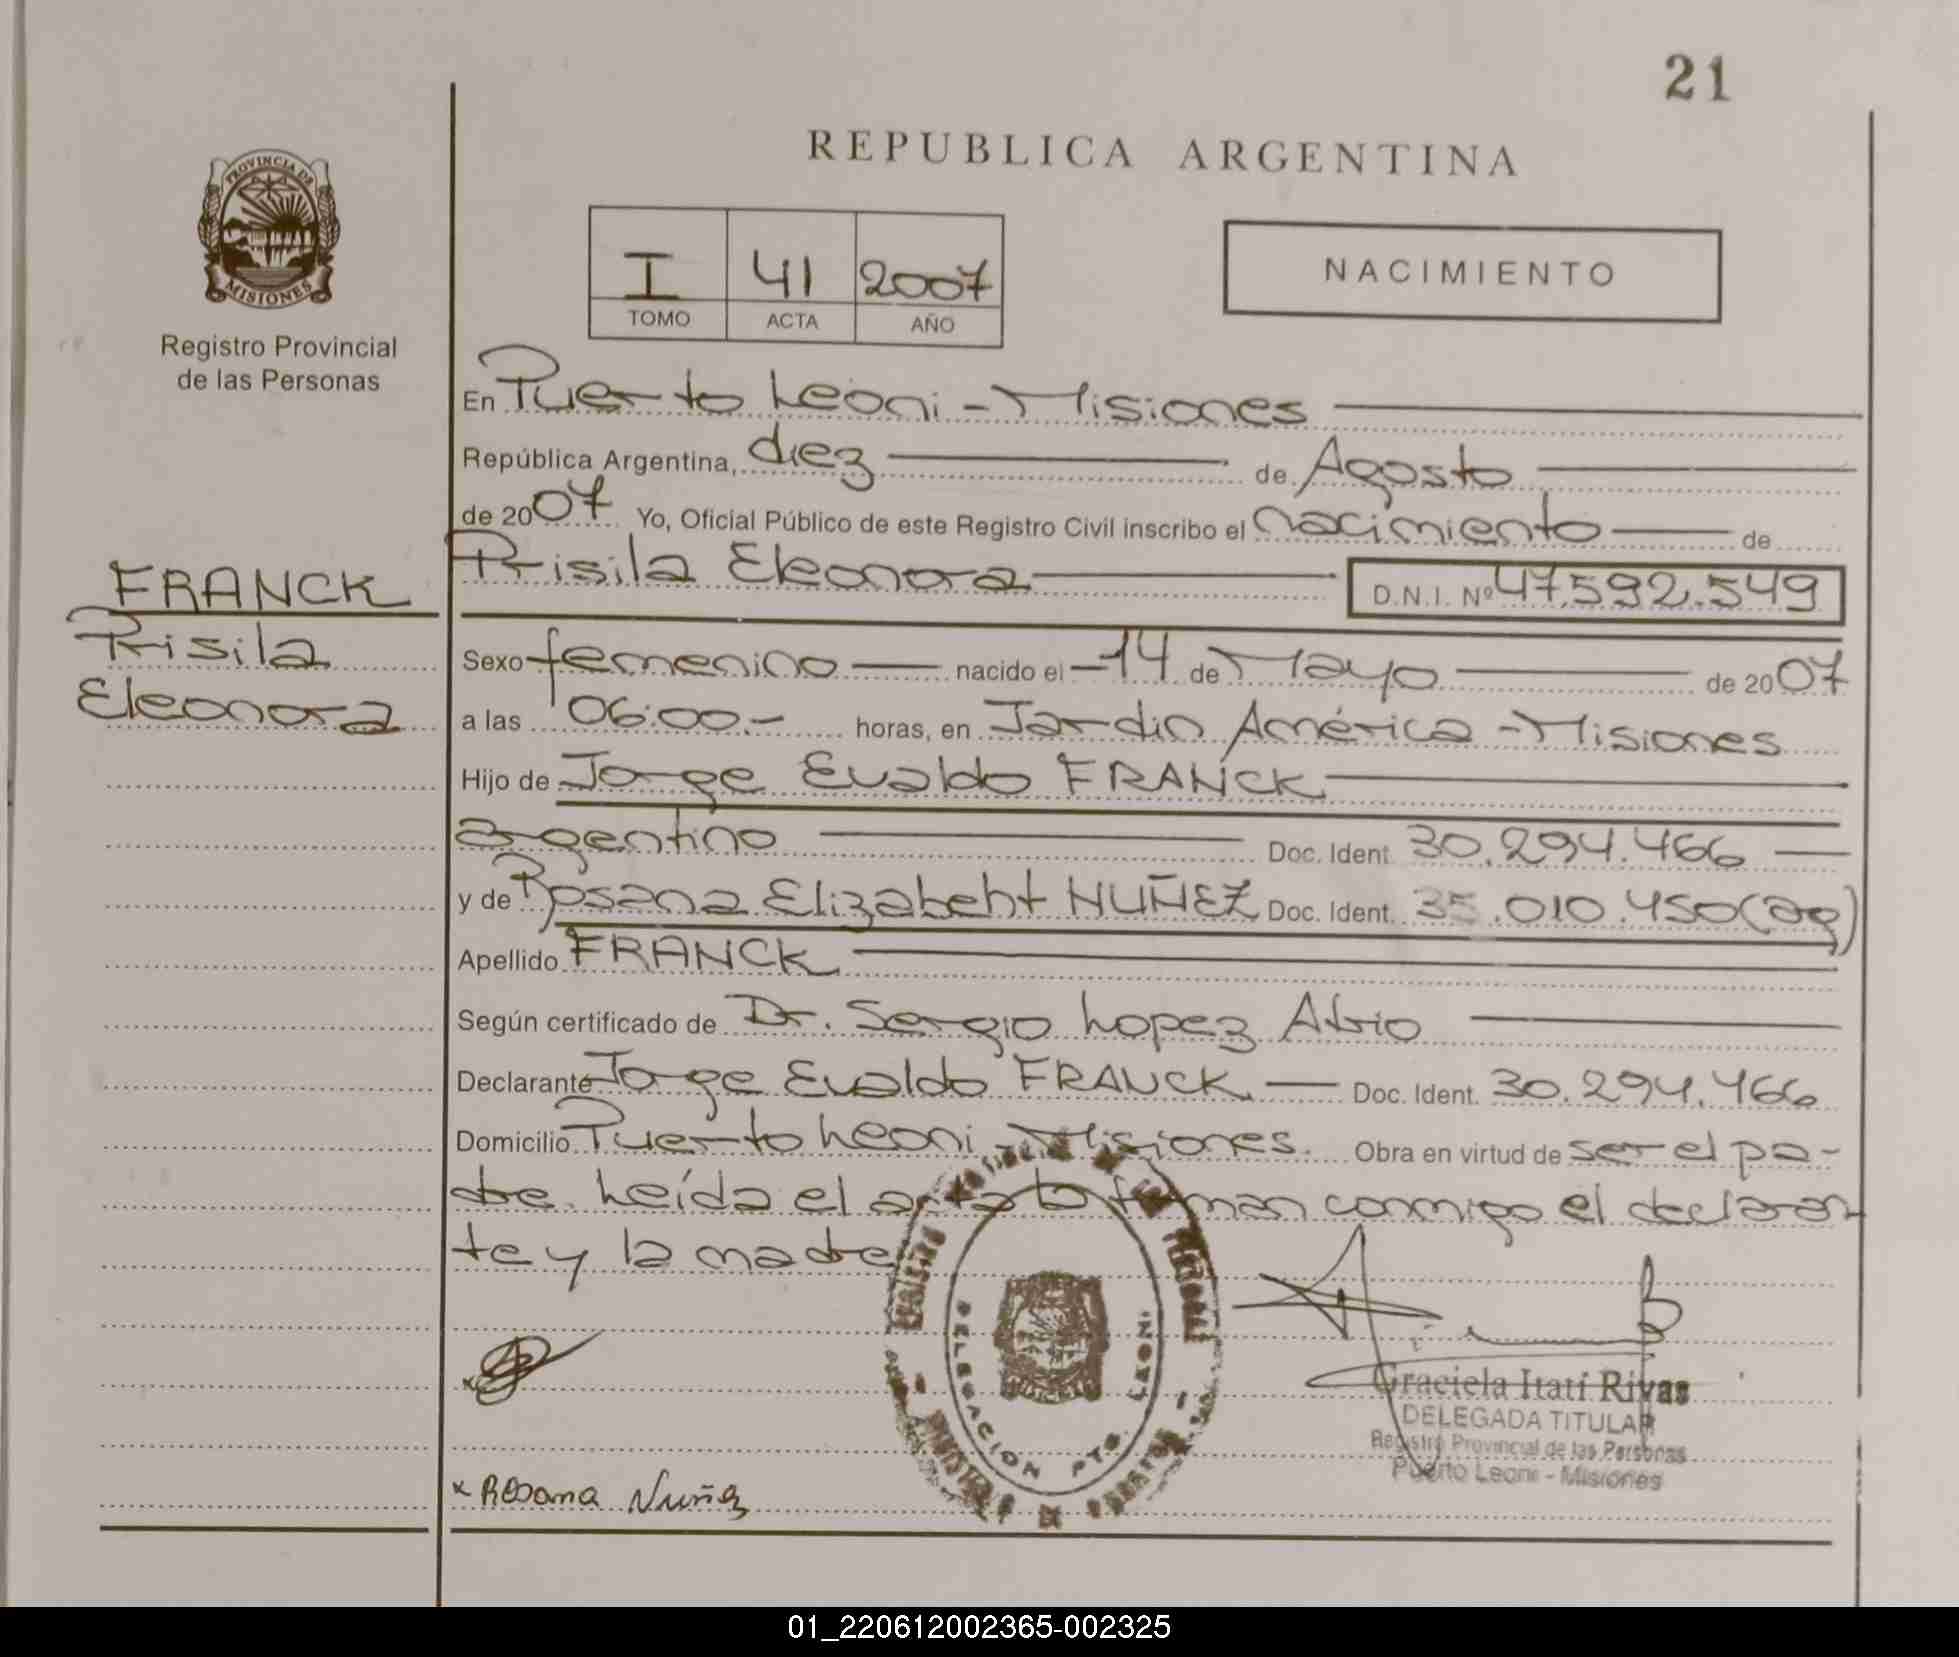 21
REPUBLICA ARGENTINA
PROVINCIA DE
MISIONES
Registro Provincial
de las Personas
I 41 2007
TOMO ACTA AÑO
NACIMIENTO
En Puerto Leoni - Misiones
República Argentina, diez de Agosto
de 2007 Yo, Oficial Público de este Registro Civil inscribo el nacimiento de
Prisila Eleonora D.N.I. Nº 47.592.549
FRANCK
Prisila
Eleonora
Sexo femenino nacido el -14 de Mayo de 2007
a las 06:00.- horas, en Jardin América - Misiones
Hijo de Jorge Evaldo FRANCK
argentino Doc. Ident. 30.294.466
y de Rosana Elizabeht NUÑEZ Doc. Ident. 35.010.450 (ag)
Apellido FRANCK
Según certificado de Dr. Sergio Lopez Atrio
Declarante Jorge Evaldo FRANCK Doc. Ident. 30.294.466
Domicilio Puerto Leoni - Misiones. Obra en virtud de ser el pa-
dre. Leída el acta la firman conmigo el declaran
te y la madre
DELEGACION PTO. LEONI
Graciela Itatí Rivas
DELEGADA TITULAR
Registro Provincial de las Personas
Puerto Leoni - Misiones
x Rosana Nuñez
01_220612002365-002325